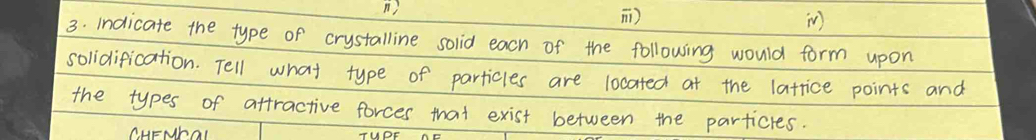 ii) iii) iv)
3. Indicate the type of crystalline solid each of the following would form upon
solidification. Tell what type of particles are located at the lattice points and
the types of attractive forces that exist between the particles.
CHEMICAL TYPE OF